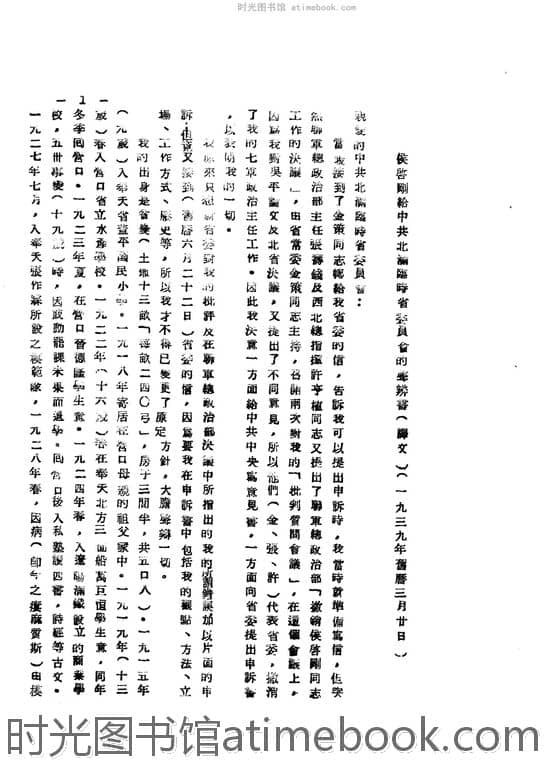 时光图书馆 atimebook.com
侯啓剛給中共北滿臨時省委員會的答辯書(譯文)(一九三九年舊曆三月廿日)
親愛的中共北滿臨時省委員會:
當我接到了金策同志轉給我省委的信,告訴我可以提出申訴時,我當時就準備寫信,但突
然聯軍總政治部主任張壽籛及西北總指揮許亨植同志又提出了聯軍總政治部「撤銷侯啓剛同志
工作的決議」,由省常委金策同志主持,召開兩次對我的「批判質問會議」,在這個會議上,
因爲我對吳平論文及北省決議,又提出了不同意見,所以他們(金、張、許)代表省委,撤消
了我的七軍政治主任工作。因此我決意一方面給中共中央寫意見書,一方面向省委提出申訴書
,以 我的一切。
我原來只想對省委對我的批評及在聯軍總政治部決議中所指出的我的所謂錯誤加以片面的申
訴,但 又接到(舊曆六月二十二日)省委的信,因爲要我在申訴書中包括我的觀點、方法、立
場、工作方式、歷史等,所以我才不得已變更了原定方針,大膽辯一切。
我的出身是省 (土地十三畝「每畝二四〇弓」,房子三間半,共五口人)。一九一五年
(九歲)入奉天省蓋平 民小學。一九一八年寄居在營口母親的祖父家中。一九一九年(十三
歲)春入營口省立水產學校。一九二二年(十六歲)春在奉天北方三面船萬巨恒學生意,同年
冬季回營口。一九二三年夏,在營口晉德 學生意。一九二四年春,入遼陽滿鐵設立的商業學
校,五卅事變(十九歲)時,因政動罷課未果而退學。回營口後入私塾讀四書,詩經等古文。
一九二七年七月,入奉天張作霖所設之模範隊,一九二八年春,因病( 年之 麻質斯)由模
时光图书馆 atimebook.com